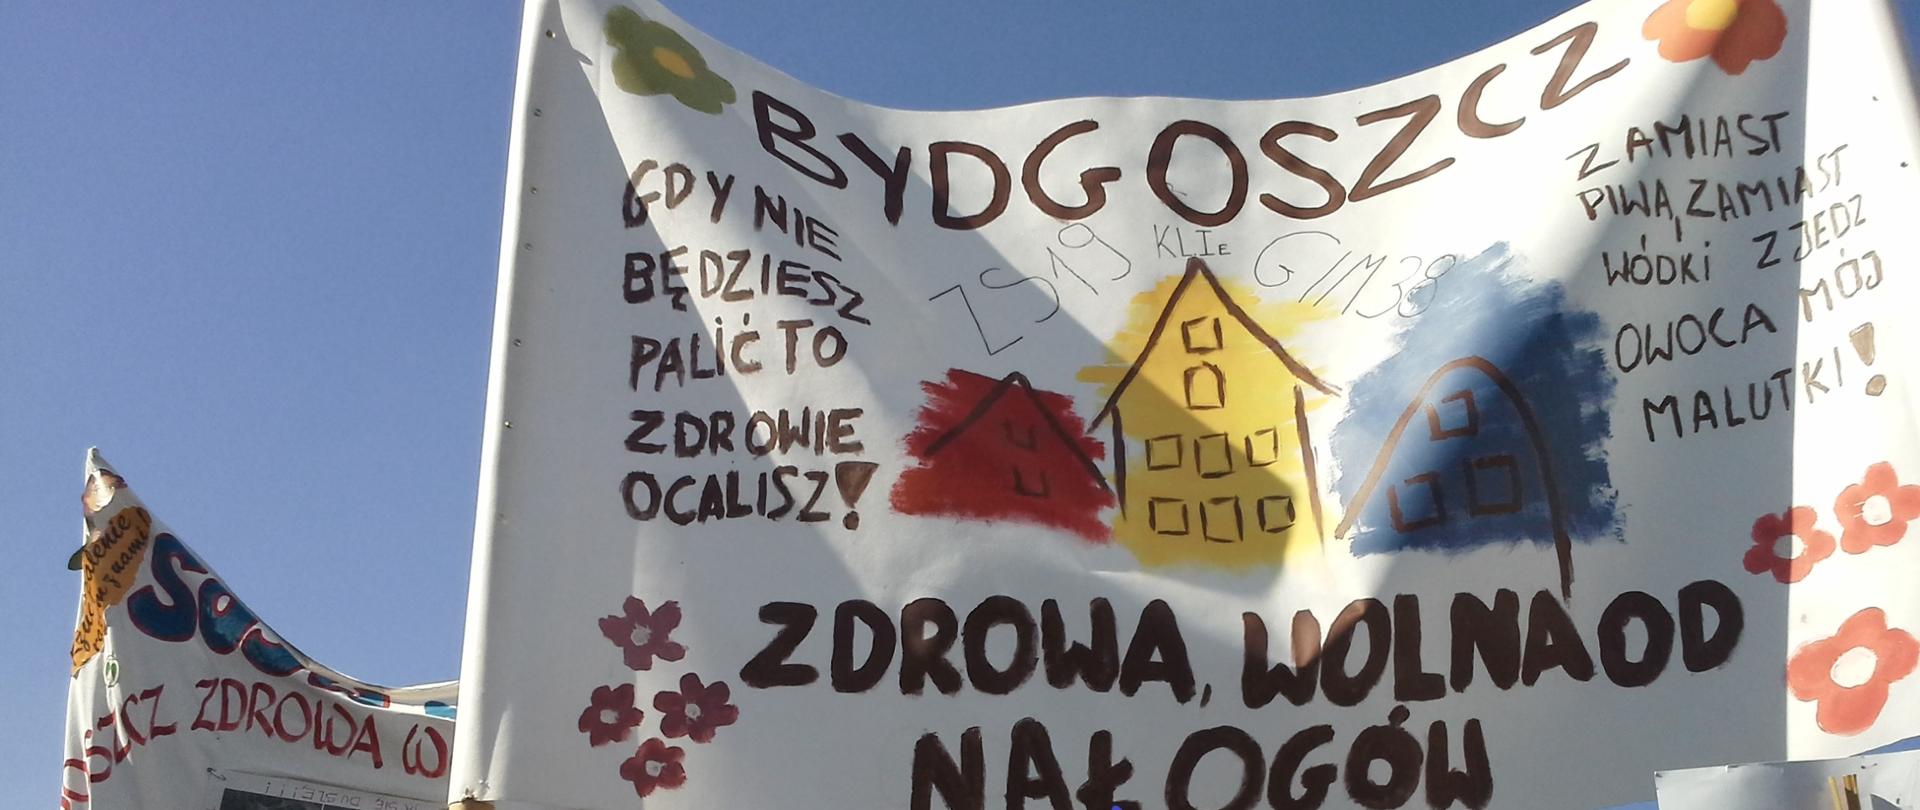 BYDGOSZCZ
GDY NIE
BĘDZIESZ
PALIĆ TO
ZDROWIE
OCALISZ!
ZS19 KLIe GIM38
ZAMIAST
PIWA, ZAMIAST
WÓDKI ZJEDZ
OWOCA MÓJ
MALUTKI!
ZDROWA, WOLNA OD
NAŁOGÓW
SZCZ ZDROWA W